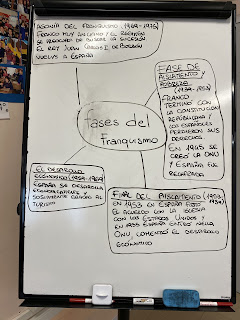 AGONÍA DEL FRANQUISMO (1969-1975)
FRANCO MUY ANCIANO Y EL RÉGIMEN
SE PREOCUPA DE BUSCAR LA SUCESIÓN
EL REY JUAN CARLOS I DE BORBÓN
VUELVE A ESPAÑA
FASE DE
AISLAMIENTO Y
POBREZA
(1939-1953)
FRANCO
TERMINÓ CON
LA CONSTITUCIÓN
REPUBLICANA Y
LOS ESPAÑOLES
PERDIERON SUS
DERECHOS.
EN 1945 SE
CREÓ LA ONU
Y ESPAÑA FUE
RECHAZADA
Fases del
Franquismo
EL DESARROLLO
ECONÓMICO (1959-1969)
ESPAÑA SE DESARROLLA
ECONÓMICAMENTE Y
SOCIALMENTE GRACIAS AL
TURISMO
FINAL DEL AISLAMIENTO (1953-
1959)
EN 1953 EN ESPAÑA FIRMÓ
EL ACUERDO CON LA IGLESIA
CON LOS ESTADOS UNIDOS Y
EN 1955 ESPAÑA ENTRÓ EN LA
ONU, COMENZÓ EL DESARROLLO
ECONÓMICO